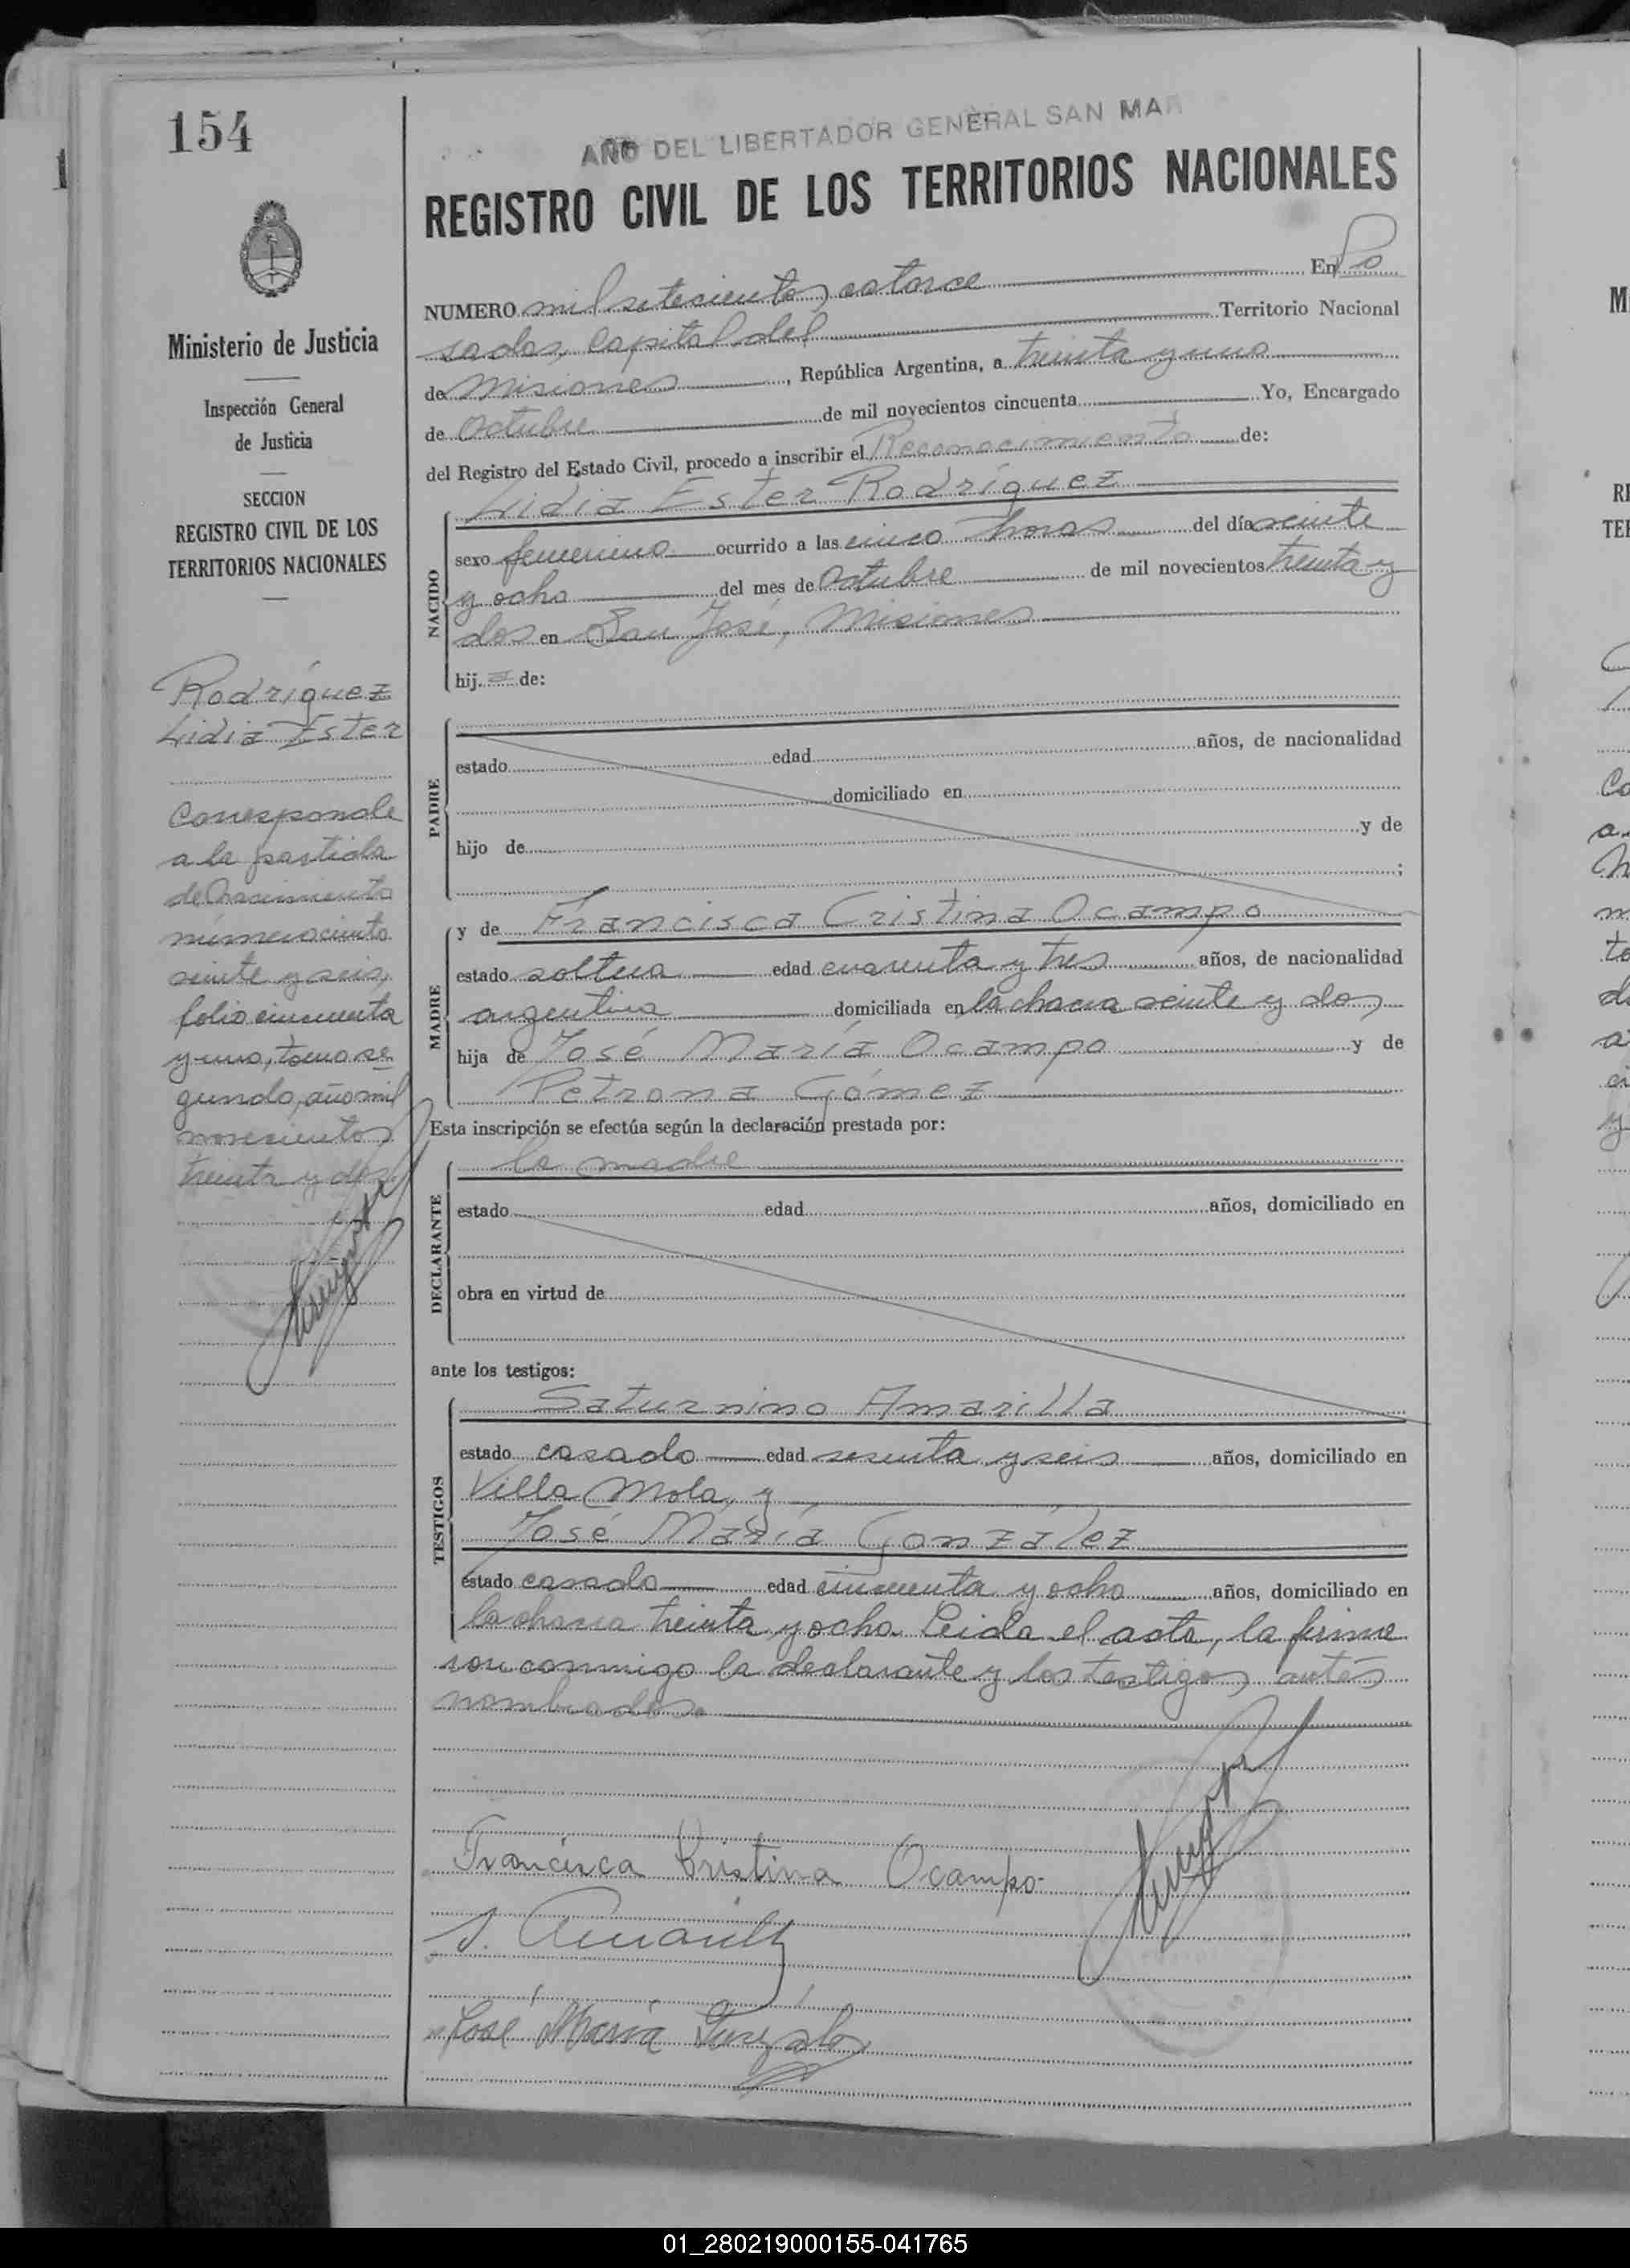 154
AÑO DEL LIBERTADOR GENERAL SAN MAR
REGISTRO CIVIL DE LOS TERRITORIOS NACIONALES
NUMERO mil setecientos catorce En Po
sadas, Capital del Territorio Nacional
de Misiones, República Argentina, a treinta y uno
de Octubre de mil novecientos cincuenta Yo, Encargado
del Registro del Estado Civil, procedo a inscribir el Reconocimiento de:
Lidia Ester Rodríguez
NACIDO
sexo femenino ocurrido a las cinco horas del día veinte
y ocho del mes de Octubre de mil novecientos treinta y
dos en San José, Misiones
hij. de:
PADRE
estado edad años, de nacionalidad
domiciliado en
hijo de y de
;
MADRE
y de Francisca Cristina Ocampo
estado soltera edad cuarenta y tres años, de nacionalidad
argentina domiciliada en la chacra veinte y dos
hija de José María Ocampo y de
Petrona Gómez
Esta inscripción se efectúa según la declaración prestada por:
DECLARANTE
la madre
estado edad años, domiciliado en
obra en virtud de
ante los testigos:
TESTIGOS
Saturnino Amarilla
estado casado edad sesenta y seis años, domiciliado en
Villa Mola, y
José María González
estado casado edad cincuenta y ocho años, domiciliado en
la chacra treinta y ocho. Leida el acta, la firma
ron conmigo la declarante y los testigos antes
nombrados.
Francisca Cristina Ocampo
S. Amarilla
José María Gonzalez
Ministerio de Justicia
Inspección General
de Justicia
SECCION
REGISTRO CIVIL DE LOS
TERRITORIOS NACIONALES
Rodríguez
Lidia Ester
Corresponde
a la partida
de Nacimiento
número ciento
veinte y seis,
folio cincuenta
y uno, tomo se
gundo, año mil
novecientos
treinta y dos
M
RE
TER
01_280219000155-041765